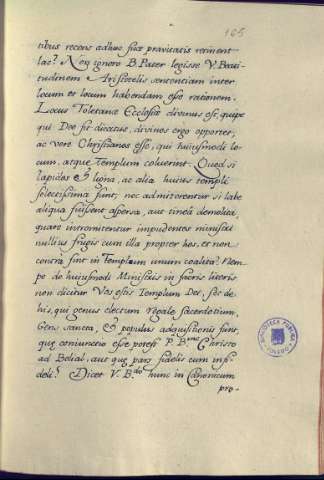 165
tibus recens adhuc suæ pravitatis retinent
lac? Neq ignoro B. Pater legisse V. Beati-
tudinem Aristotelis sententiam inter
locum et locum habendam esse rationem.
Locus Toletanæ Ecclesiæ divinus est, quipe
qui Deo sit dicatus, divinos ergo opportet,
ac vere Christianos esse, qui huiusmodi lo-
cum, atque Templum coluerint. Quod si
lapides & ligna, ac alia huius templi
selectissima sunt; nec admitterentur si labe
aliqua fuissent aspersa, aut tinea demolita,
quare intromitentur impudentes ministri
nullius frugis cum illa propter hos, et non
contra sint in Templum unum coalita? Nem-
pe de huiusmodi Ministris in sacris literis
non dicitur Vos estis Templum Dei, sed de
his, qui genus electum regale sacerdotium,
Gens sancta, & populus adquisitionis sunt,
quæ coniunctio esse potest P. B.me Christo
ad Belial, aut quæ pars fidelis cum infi-
deli? Dicet V. B.do hunc in Canonicum
pro-
BIBLIOTECA PUBLICA
TOLEDO